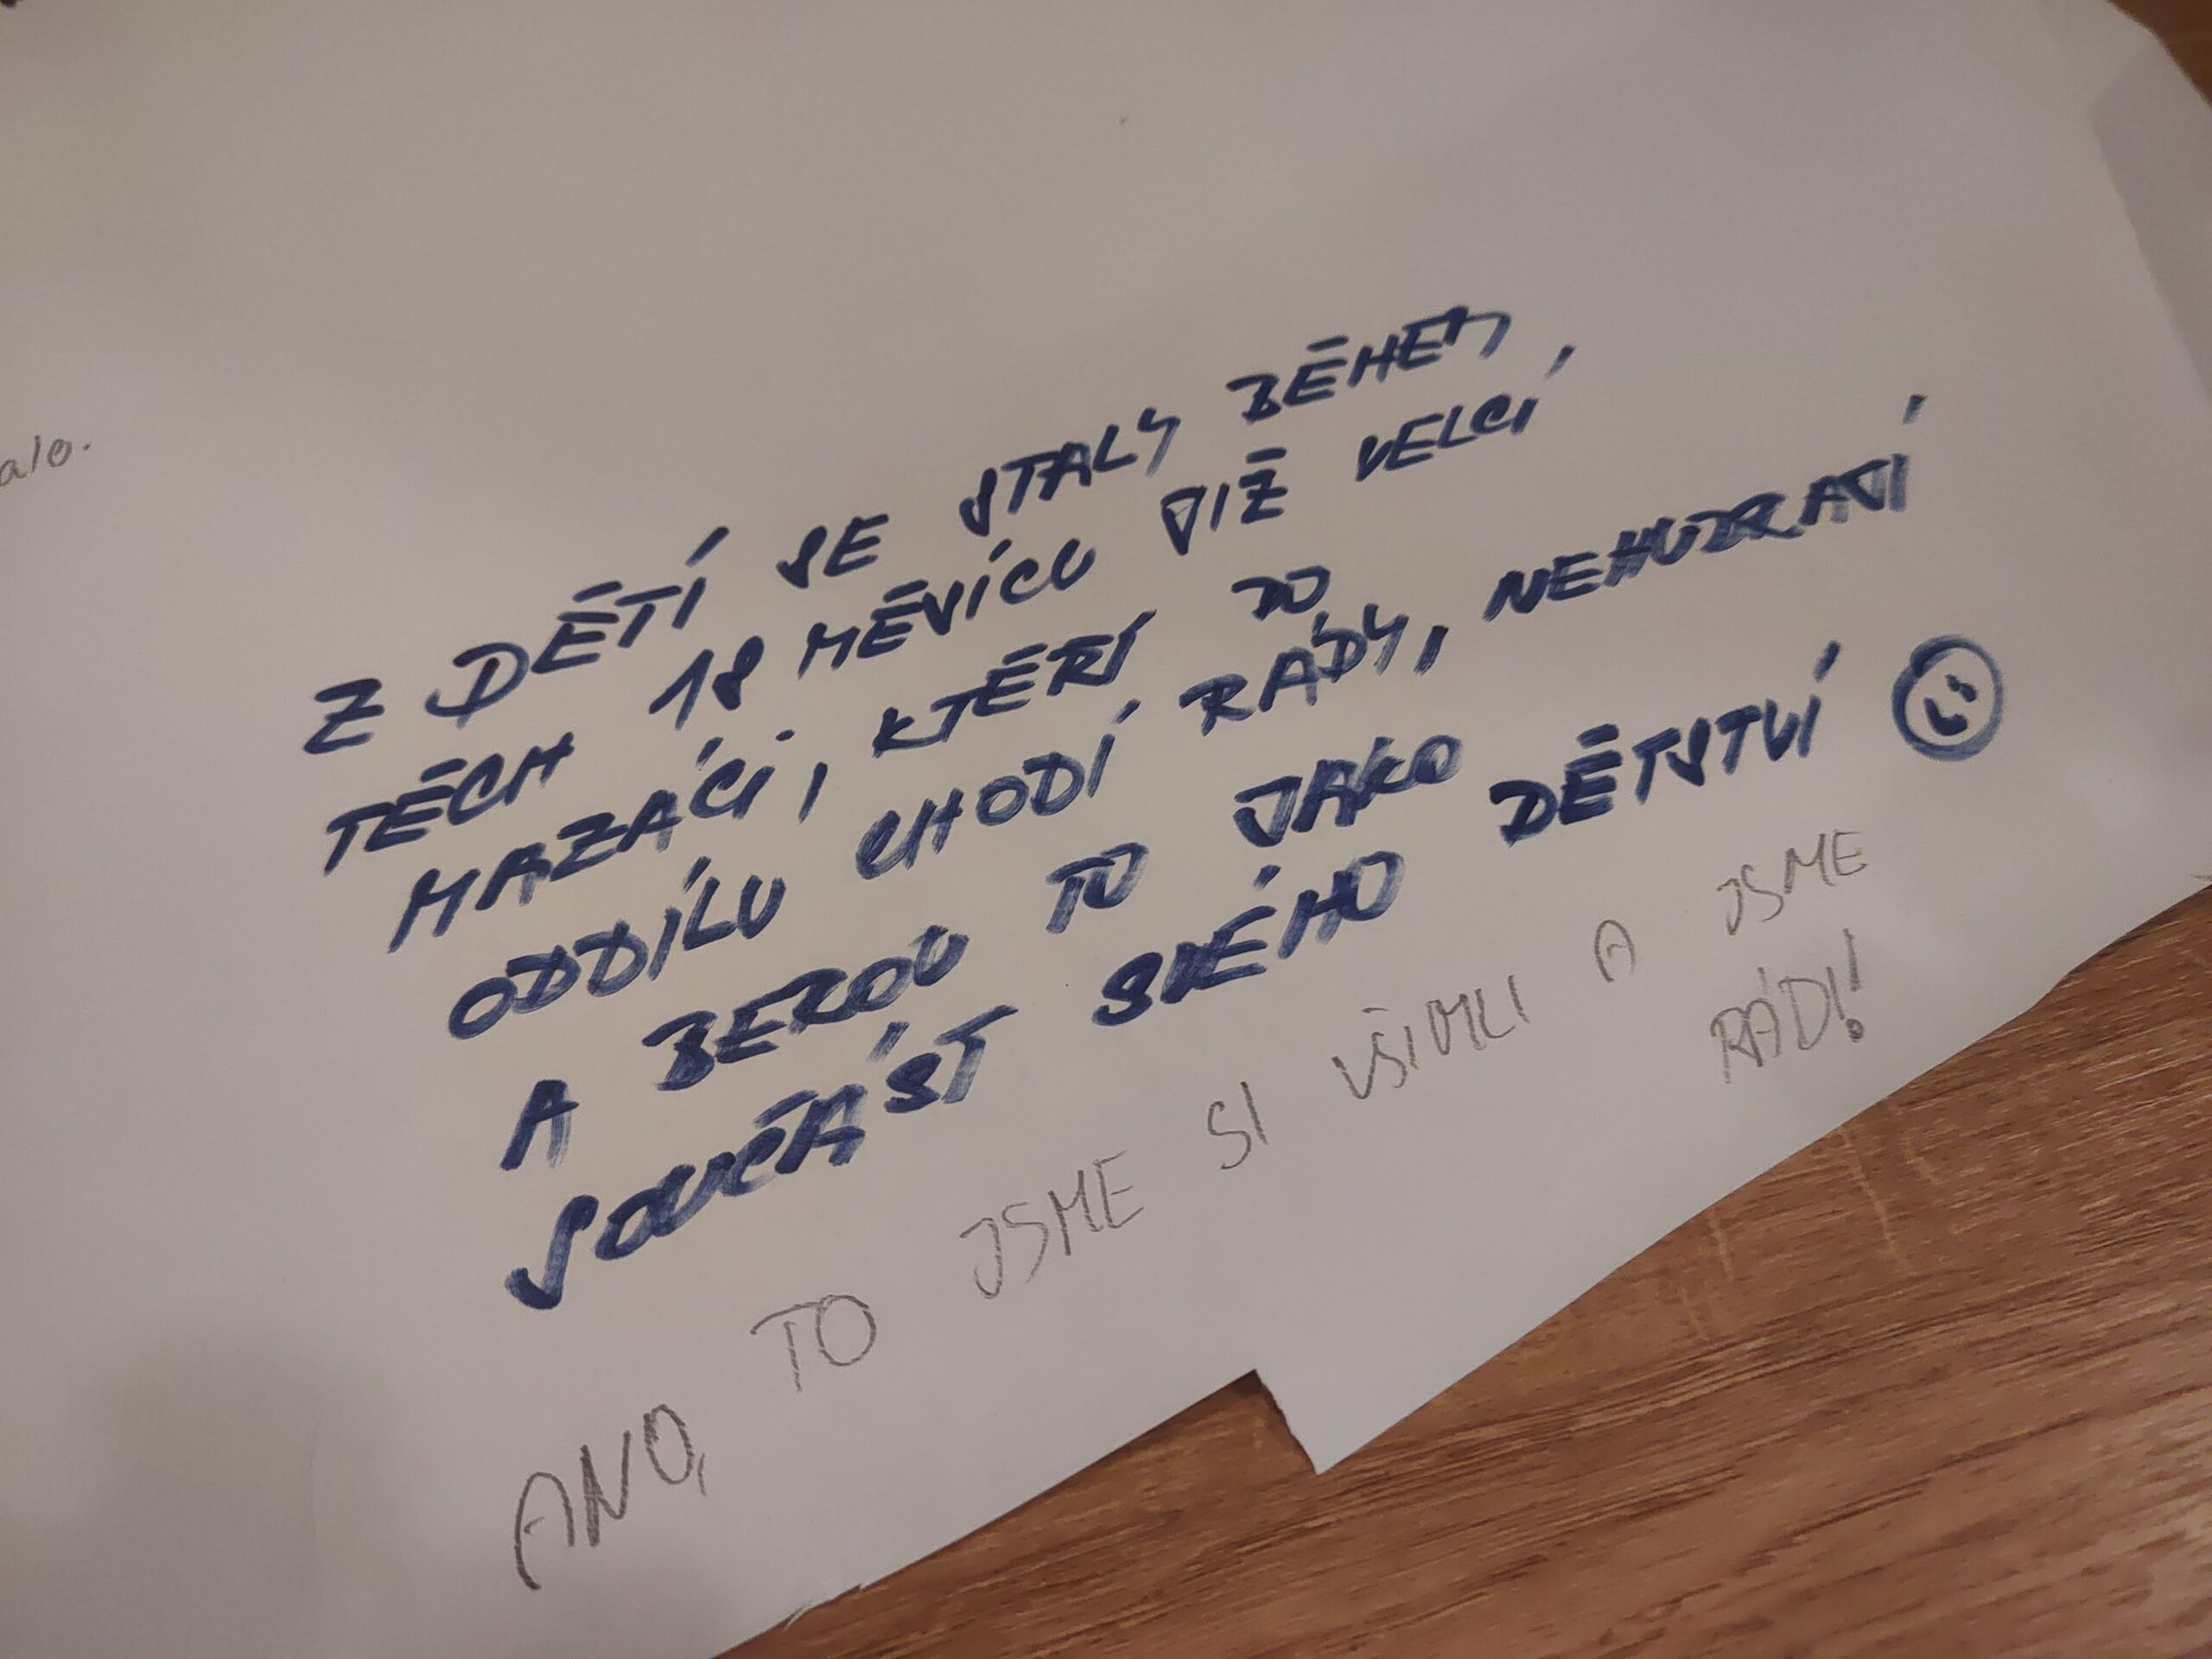 alo.
Z DĚTÍ SE STALY BĚHEM
TĚCH 18 MĚSÍCŮ JIŽ VELCÍ
MAZÁCI, KTEŘÍ DO
ODDÍLU CHODÍ RÁDY, NEHUDRAJÍ
A BEROU TO JAKO
SOUČÁST SVÉHO DĚTSTVÍ
ANO, TO JSME SI VŠIMLI A JSME
RÁDI!